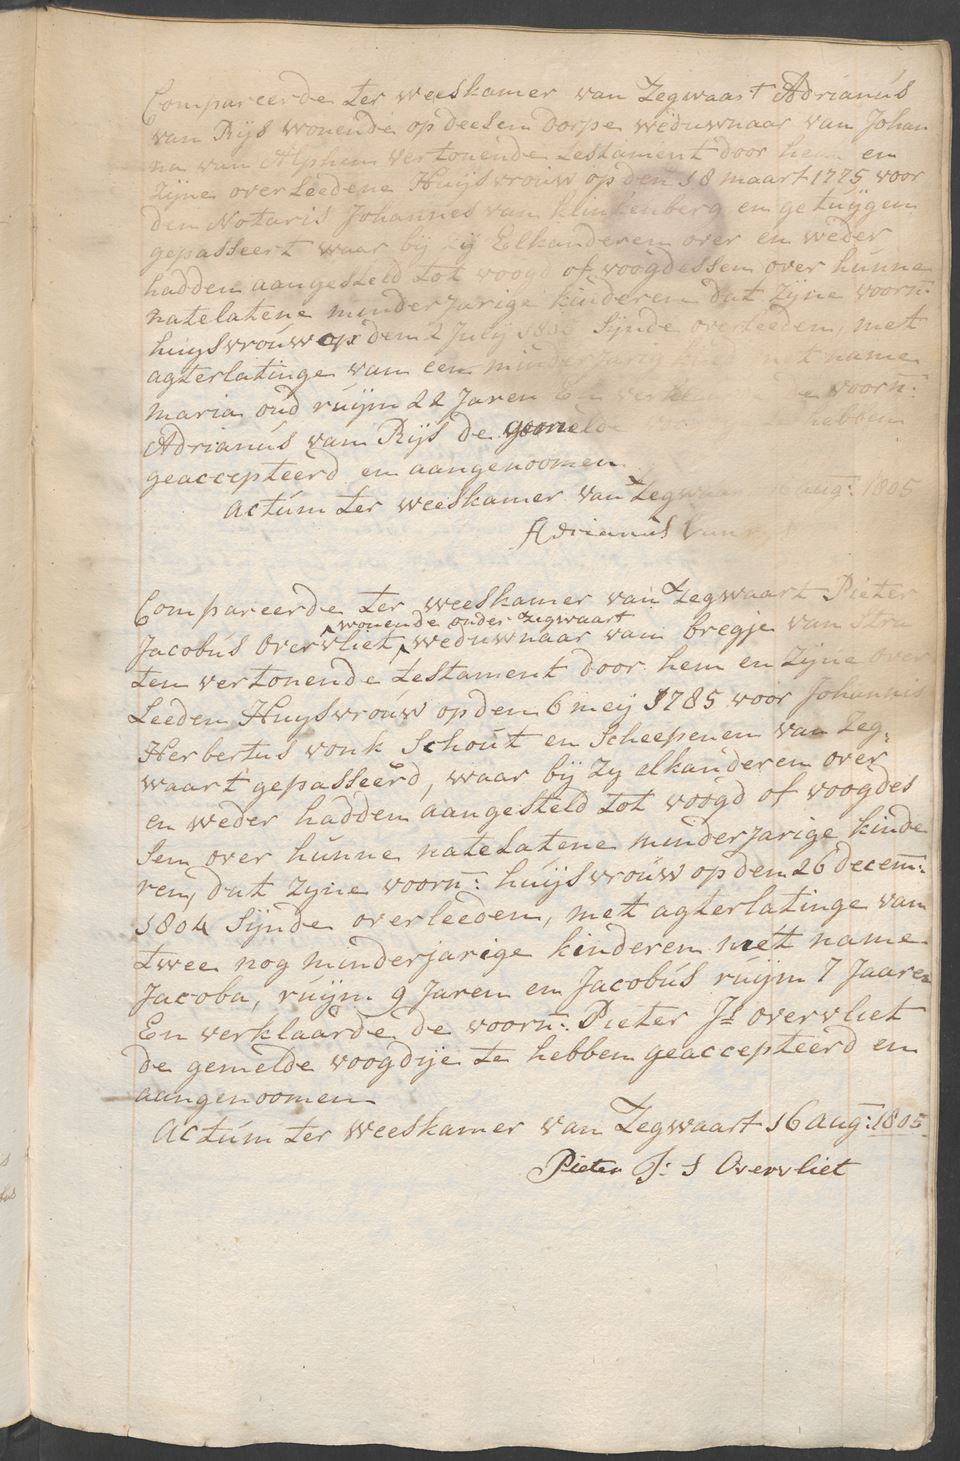 Compareerde ter weeskamer van Zegwaart Adrianus
van Rijs wonende op deesen dorpe weduwnaar van Johan
na van Alphen vertonende testament door hem en
zijne overleedene Huijsvrouw op den 18 maart 1775 voor
den Notaris Johannes van Klinkenberg en getuijgen
gepasseert waar bij zij Elkanderen over en weder
hadden aangesteld tot voogd of voogdessen over hunne
natelatene minderjarige kinderen dat zijne voorn:
huijsvrouw op den 2 Julij Sijnde overleeden, met
agterlatinge van een minde met name
maria oud ruijm 22 Jaren En voorn:
Adrianus van Rijs de gemelde hebben
geaccepteerd en aangenoomen
Actum ter weeskamer van Zegwaa aug: 1805
Adrianus van
Compareerde ter weeskamer van Zegwaart Pieter
wonende onder Zegwaart
Jacobus Overvliet, weduwnaar van bregje van Stra
ten vertonende testament door hem en zijne over
Leeden Huijsvrouw op den 6 meij 1785 voor Johannis
Herbertus vonk Schout en Scheepenen van Zeg,
waart gepasseerd, waar bij zij elkanderen over
en weder hadden aangesteld tot voogd of voogdes
sen over hunne natelatene minderjarige kinde
ren, dat zijne voorn: huijsvrouw op den 26 decem:
1804 Sijnde overleeden, met agterlatinge van
twee nog minderjarige kinderen met name
Jacoba, ruijm 9 Jaren en Jacobus ruijm 7 Jaaren
En verklaarde de voorn: Pieter Js Overvliet
de gemelde voogdije te hebben geaccepteerd en
aangenoomen
Actum ter weeskamer van Zegwaart 16 aug: 1805
Pieter J: S Overvliet